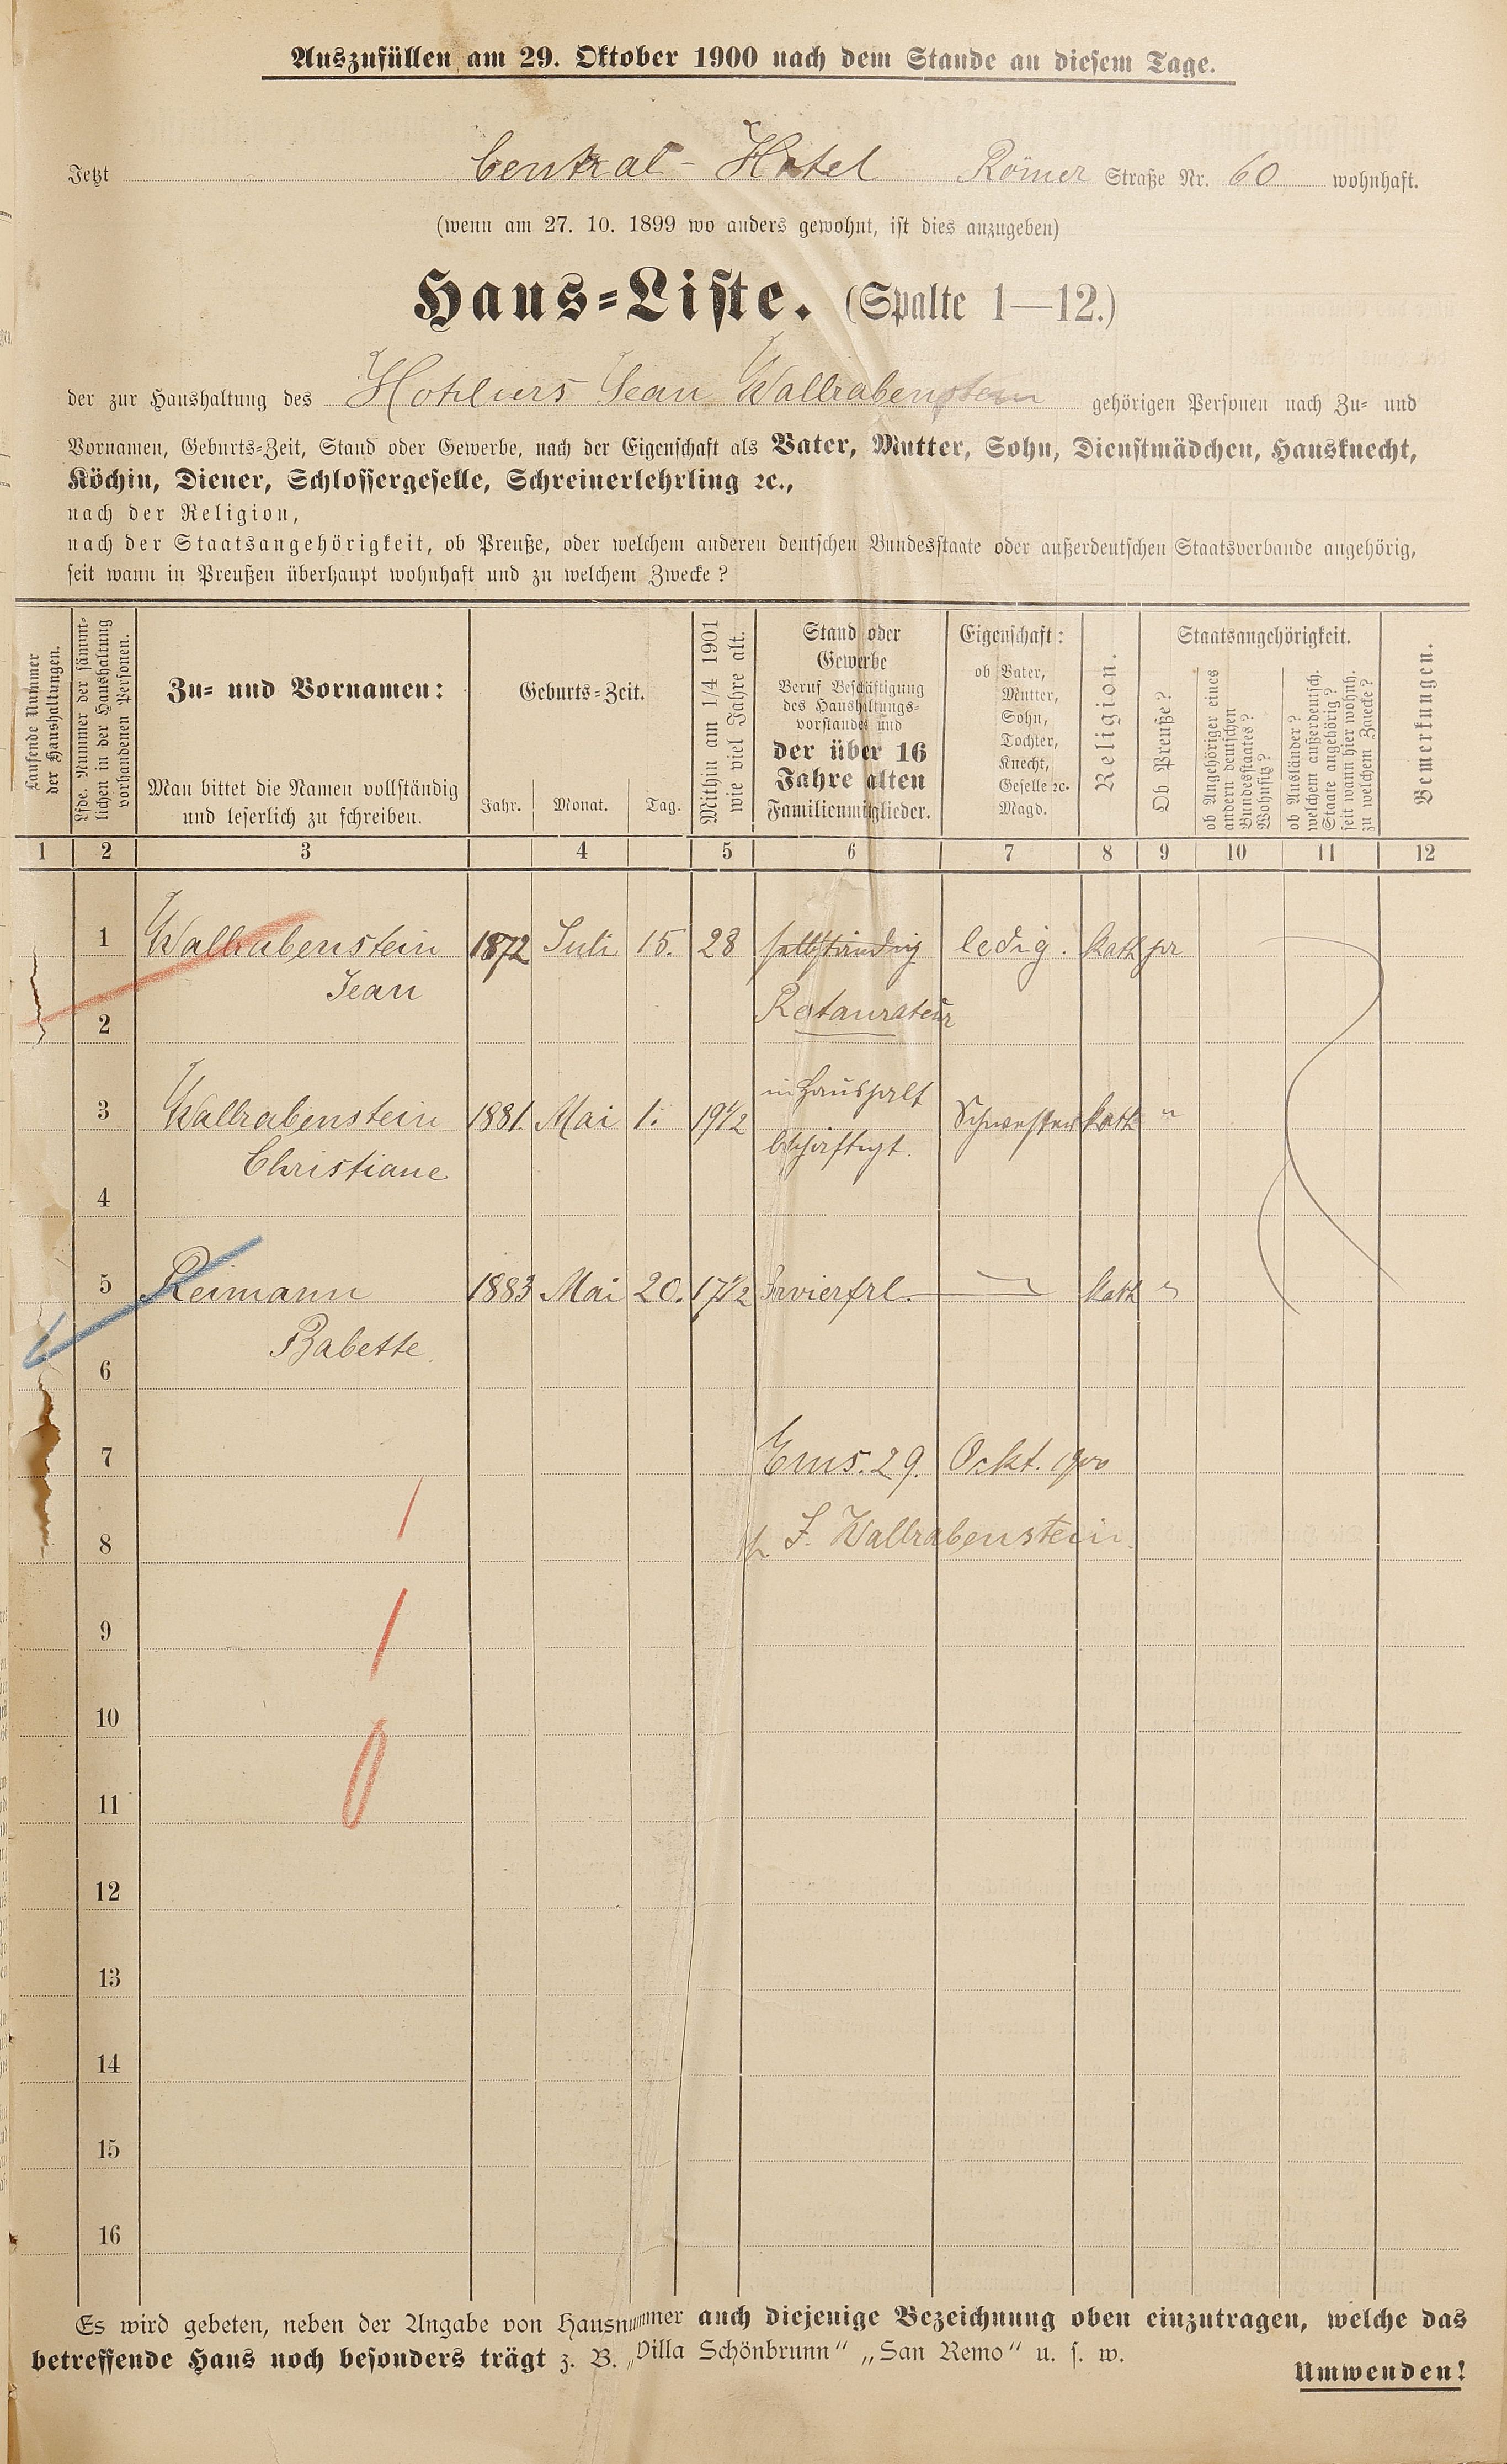 Auszufüllen am 29. Oktober 1900 nach dem Stande an diesem Tage.
Jetzt Central-Hotel Römer Straße Nr. 60 wohnhaft.
(wenn am 27. 10. 1899 wo anders gewohnt, ist dies anzugeben)
Haus-Liste. (Spalte 1—12.)
der zur Haushaltung des Hoteliers Jean Wallrabenstein gehörigen Personen nach Zu- und
Vornamen, Geburts-Zeit, Stand oder Gewerbe, nach der Eigenschaft als Vater, Mutter, Sohn, Dienstmädchen, Hausknecht,
Köchin, Diener, Schlossergeselle, Schreinerlehrling ꝛc.,
nach der Religion,
nach der Staatsangehörigkeit, ob Preuße, oder welchem anderen deutschen Bundesstaate oder außerdeutschen Staatsverbande angehörig,
seit wann in Preußen überhaupt wohnhaft und zu welchem Zwecke?
Laufende Nummer
der Haushaltungen.
Lfde. Nummer der sämmt-
lichen in der Haushaltung
vorhandenen Personen.
Zu- und Vornamen:
Man bittet die Namen vollständig
und leserlich zu schreiben.
Geburts-Zeit.
Jahr. Monat. Tag.
Mithin am 1/4 1901
wie viel Jahre alt.
Stand oder
Gewerbe
Beruf Beschäftigung
des Haushaltungs-
vorstandes und
der über 16
Jahre alten
Familienmitglieder.
Eigenschaft:
ob Vater,
Mutter,
Sohn,
Tochter,
Knecht,
Geselle ꝛc.
Magd.
Religion.
Staatsangehörigkeit.
Ob Preuße?
ob Angehöriger eines
andern deutschen
Bundesstaates?
Wohnsitz?
ob Ausländer?
welchem außerdeutsch.
Staate angehörig?
seit wann hier wohnh.
zu welchem Zwecke?
Bemerkungen.
1 2 3 4 5 6 7 8 9 10 11 12
1 Wallrabenstein 1872 Juli 15. 28 selbständig ledig. kath pr
Jean Restaurateur
2
in Haushalt
3 Wallrabenstein 1881. Mai 1. 19 1/2 Schwester kath "
beschäftigt.
Christiane
4
5 Reimann 1883 Mai 20. 17 1/2 Servierfrl. — kath "
Babette
6
7 Ems. 29. Ockt. 1900
8 J. Wallrabenstein.
9
10
11
12
13
14
15
16
Es wird gebeten, neben der Angabe von Hausnummer auch diejenige Bezeichnung oben einzutragen, welche das
betreffende Haus noch besonders trägt z. B. „Villa Schönbrunn“ „San Remo“ u. s. w.
Umwenden!